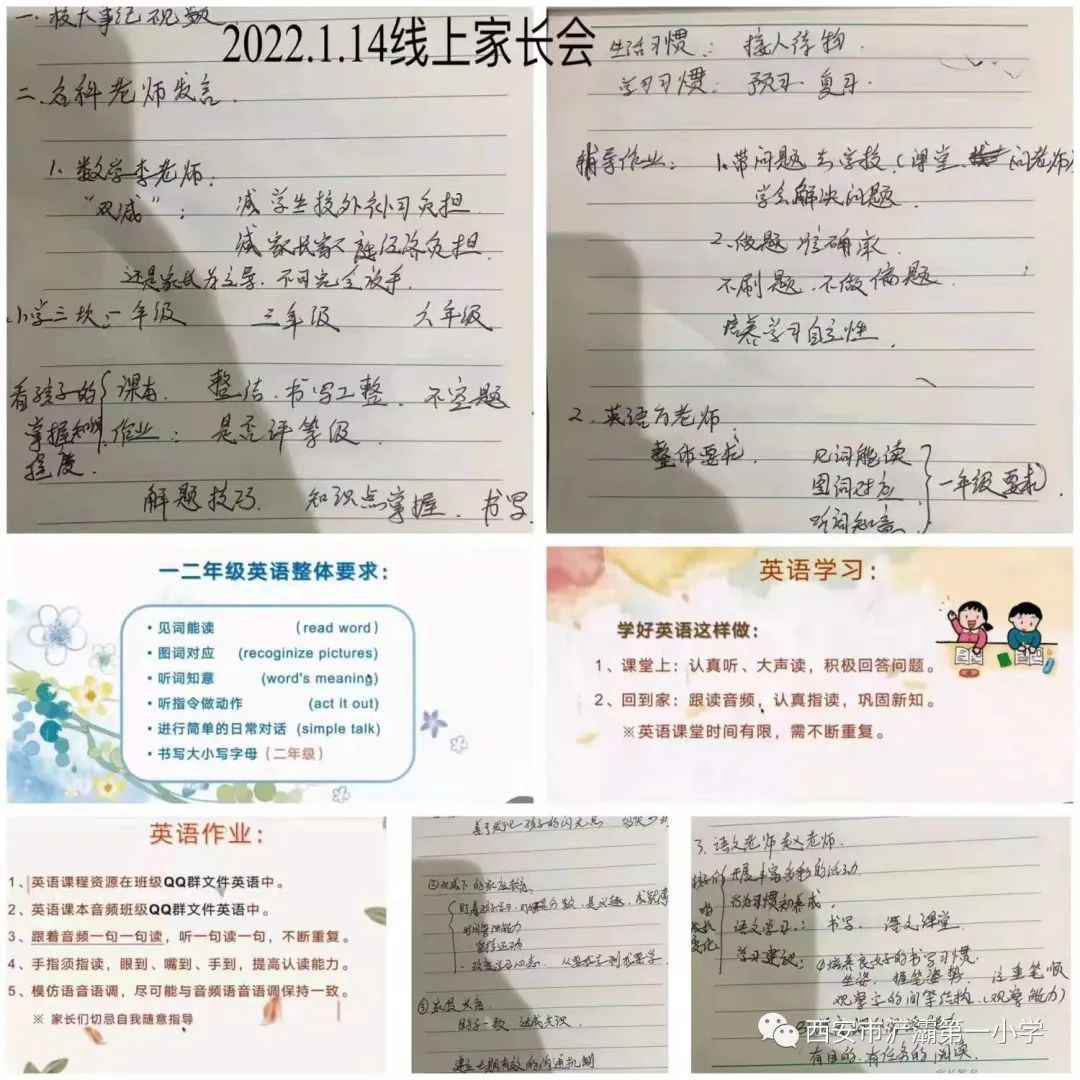 2022.1.14线上家长会
一.校大事纪视频
二.各科老师发言.
1.数学李老师:
“双减”: 减学生校外补习负担.
减家长家庭经济负担.
还是家长为主导.不可完全放手.
小学三坎:一年级 三年级 六年级
看孩子的 课本. 整洁.书写工整. 不空题
掌握知识 作业: 是否评等级.
程度.
解题技巧. 知识点掌握. 书写.
生活习惯: 接人待物.
学习习惯: 预习.复习.
辅导作业: 1.带问题去学校(课堂 问老师)
学会解决问题.
2.做题准确率.
不刷题.不做偏题.
培养学习自主性.
2.英语方老师:
整体要求: 见词能读
图词对应 一年级要求
听词知意
一二年级英语整体要求:
• 见词能读 (read word)
• 图词对应 (recoginize pictures)
• 听词知意 (word's meaning)
• 听指令做动作 (act it out)
• 进行简单的日常对话 (simple talk)
• 书写大小写字母(二年级)
英语学习:
学好英语这样做:
1、课堂上:认真听、大声读,积极回答问题。
2、回到家:跟读音频,认真指读,巩固新知。
※英语课堂时间有限,需不断重复。
英语作业:
1、英语课程资源在班级QQ群文件英语中。
2、英语课本音频班级QQ群文件英语中。
3、跟着音频一句一句读,听一句读一句,不断重复。
4、手指须指读,眼到、嘴到、手到,提高认读能力。
5、模仿语音语调,尽可能与音频语音语调保持一致。
※ 家长们切忌自我随意指导
孩子的闪光点
②双减下的家庭教育.
时间管理能力
③家校共育.
目标一致.达成共识.
建立长期有效的沟通机制
3.语文老师赵老师.
开展丰富多彩的活动.
行为习惯初养成.
语文学习: 书写. 语文课堂.
学习建议: ①培养良好的书写习惯.
坐姿. 握笔姿势. 注重笔顺
观察字的间架结构.(观察能力)
有目的.有任务的阅读.
西安市浐灞第一小学